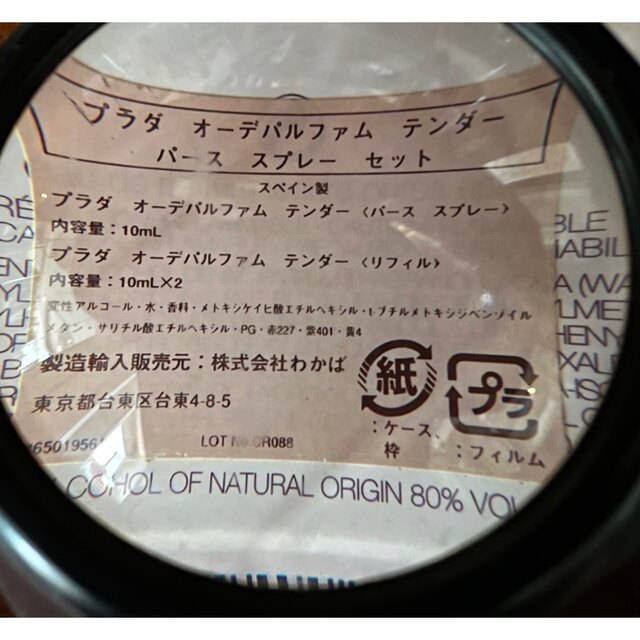 プラダ オーデパルファム テンダー
パース スプレー セット
スペイン製
プラダ オーデパルファム テンダー〈パース スプレー〉
内容量：10mL
プラダ オーデパルファム テンダー〈リフィル〉
内容量：10mL×2
変性アルコール・水・香料・メトキシケイヒ酸エチルヘキシル・t-ブチルメトキシジベンゾイル
メタン・サリチル酸エチルヘキシル・PG・赤227・紫401・黄4
製造輸入販売元：株式会社わかば
東京都台東区台東4-8-5
紙
：ケース、
枠
プラ
：フィルム
LOT No CR088
ALCOHOL OF NATURAL ORIGIN 80% VOL